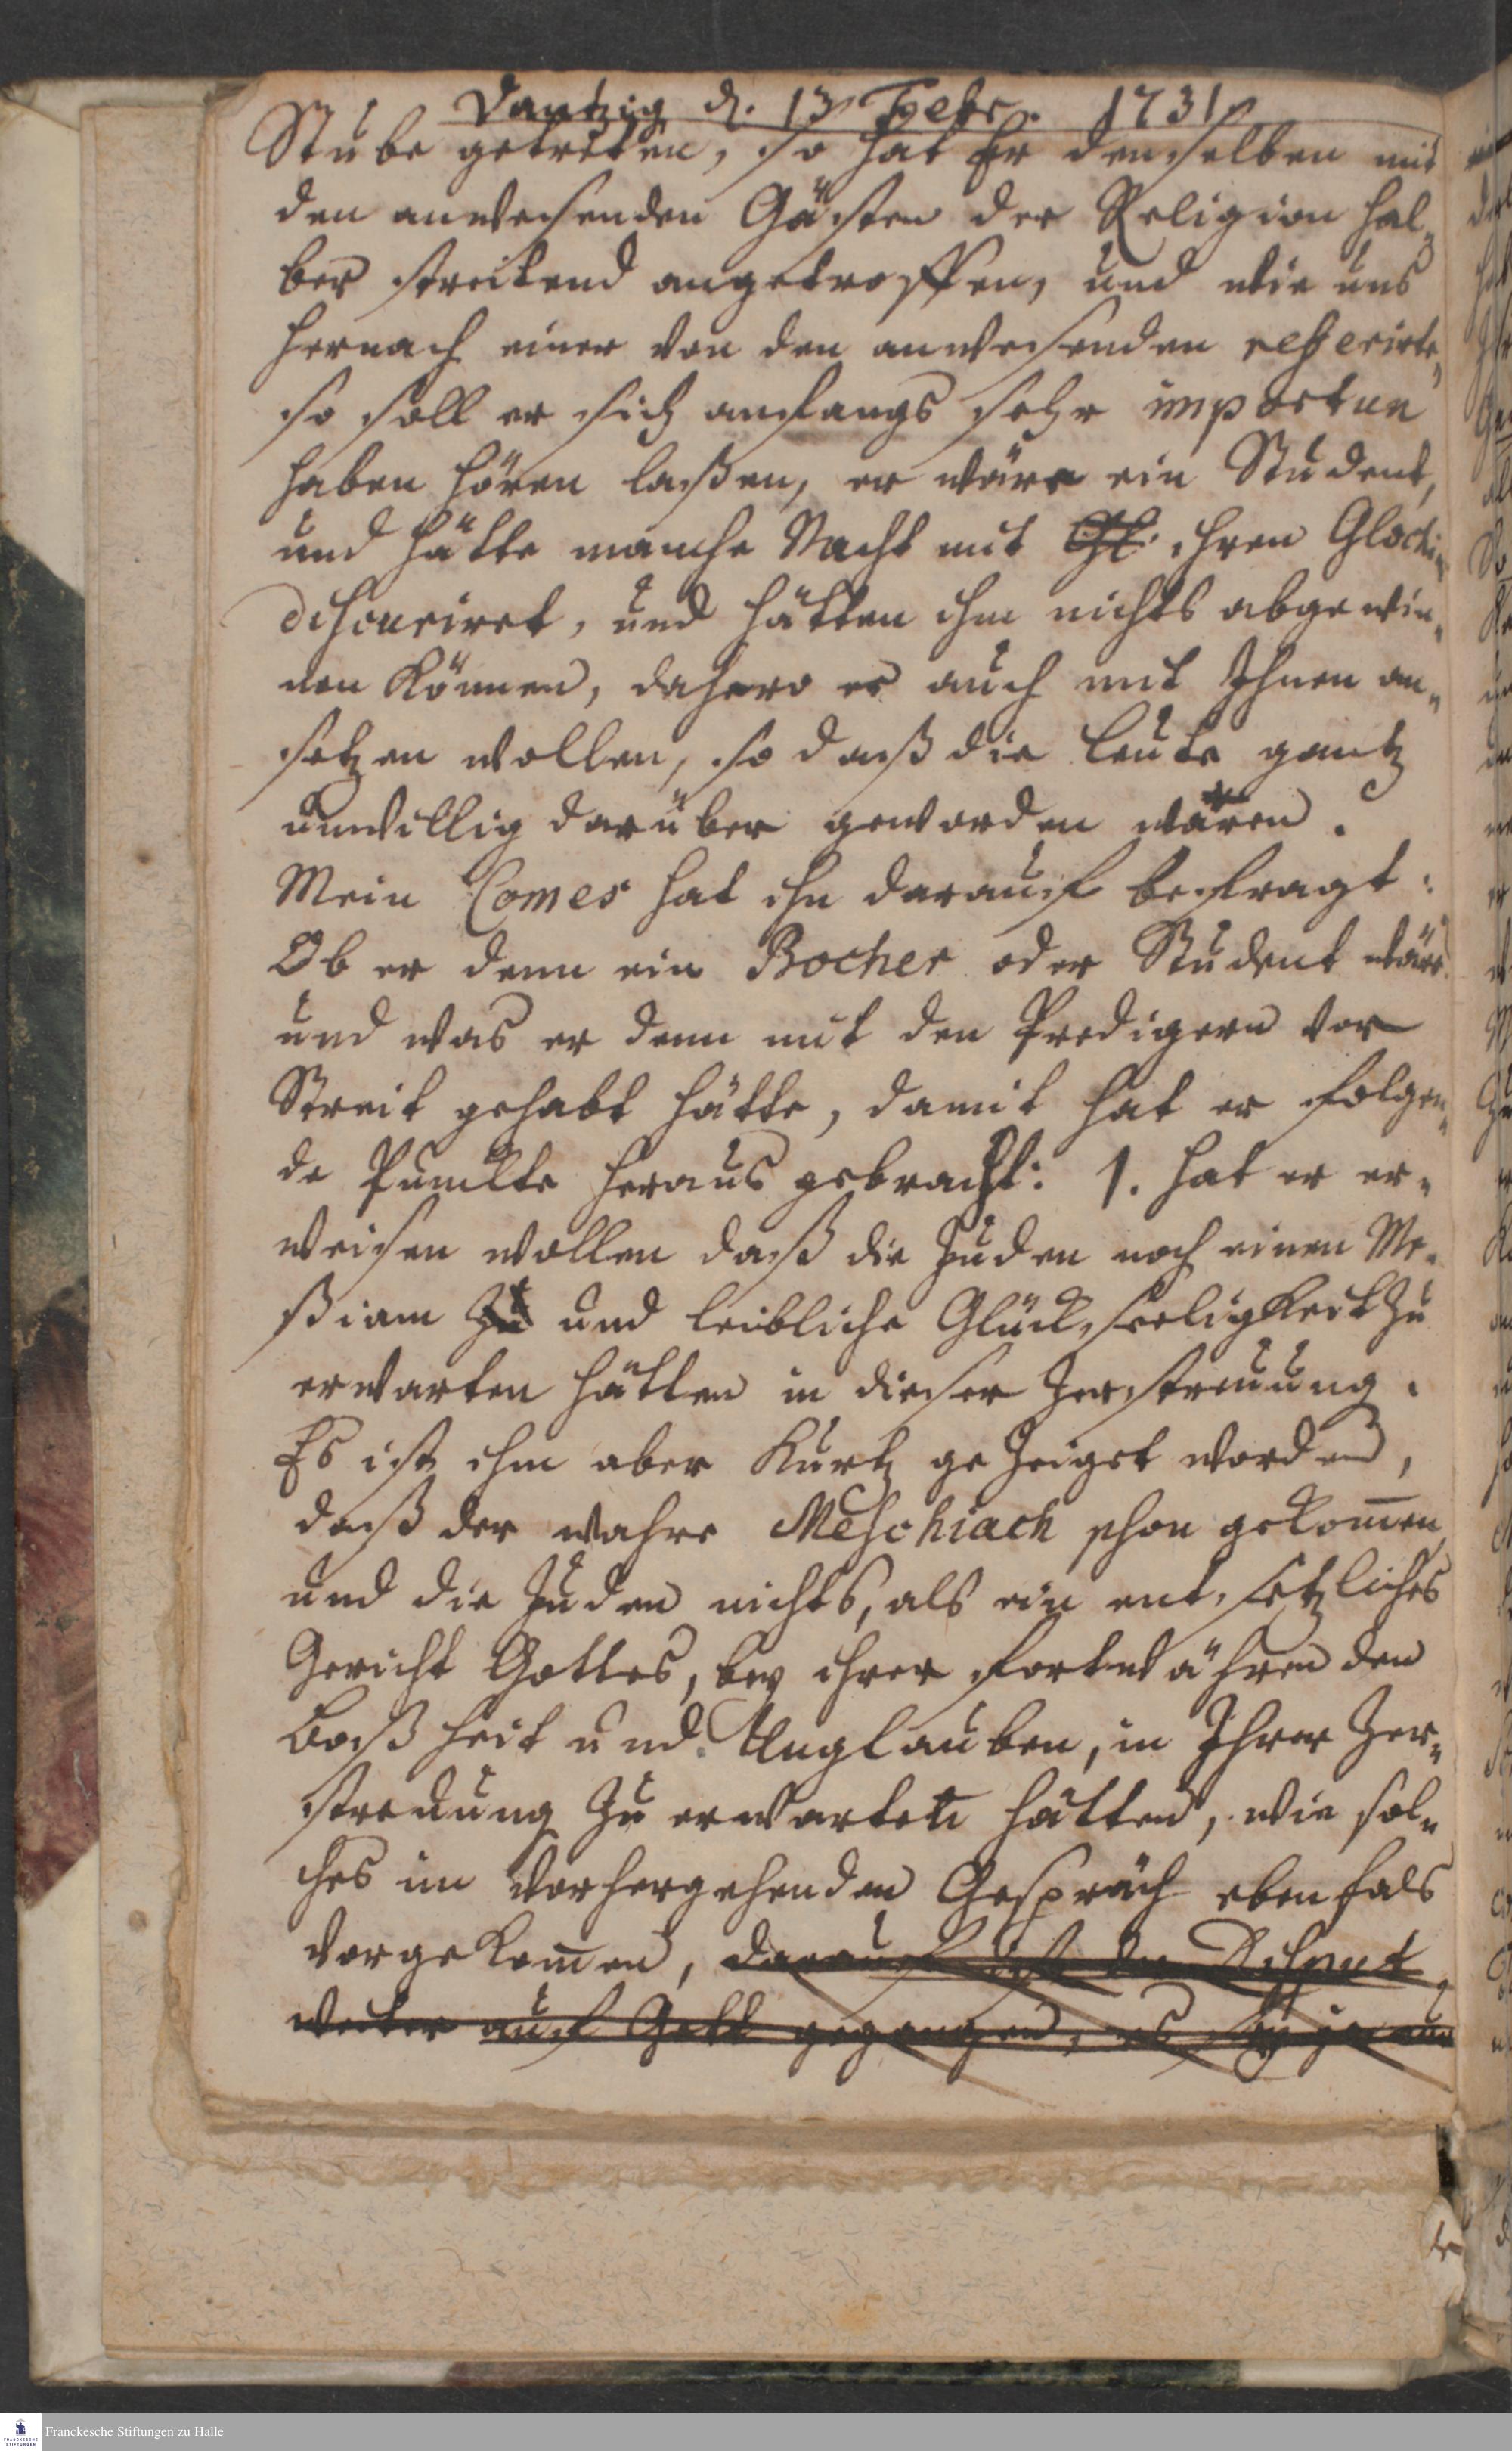 Dantzig d. 13 Febr. 1731
Stube getreten, so hat Er denselben mit
den anwesenden Gästen der Religion hal-
ber streitend angetroffen, und wie uns
hernach einer von den anwesenden referirte,
so soll er sich anfangs sehr importun
haben hören laßen, er wäre ein Student,
und hätte manche Nacht mit ihren
discuriret, und hätten ihm nichts abgewin-
nen können, dahero er auch mit Ihnen an-
setzen wollen, so daß die Leute gantz
unwillig darüber geworden wären.
Mein Comes hat ihn darauf befragt:
Ob er denn ein Bocher oder Student wäre
und was er denn mit den Predigern vor
Streit gehabt hätte, damit hat er folgen-
de Puncte heraus gebracht: 1. hat er er-
weisen wollen daß die Juden noch einen Me-
ßiam zu und leibliche Glück-seeligkeit zu
erwarten hätten in dieser Zerstreuung.
Es ist ihm aber kurtz gezeiget worden,
daß der wahre Meschiach schon gekom̅en
und die Juden nichts, als ein ent-setzliches
Gericht Gottes, bey ihrer fortwährenden
Boßheit und Unglauben, in Ihrer Zer-
streuung zu erwarten hätten, wie sol-
ches im vorhergehenden Gespräch ebenfals
vorgekom̅en, darauf ist der Disput
weiter auf Gott gegangen, es sey ja nur
Franckesche Stiftungen zu Halle
FRANCKESCHE
STIFTUNGEN